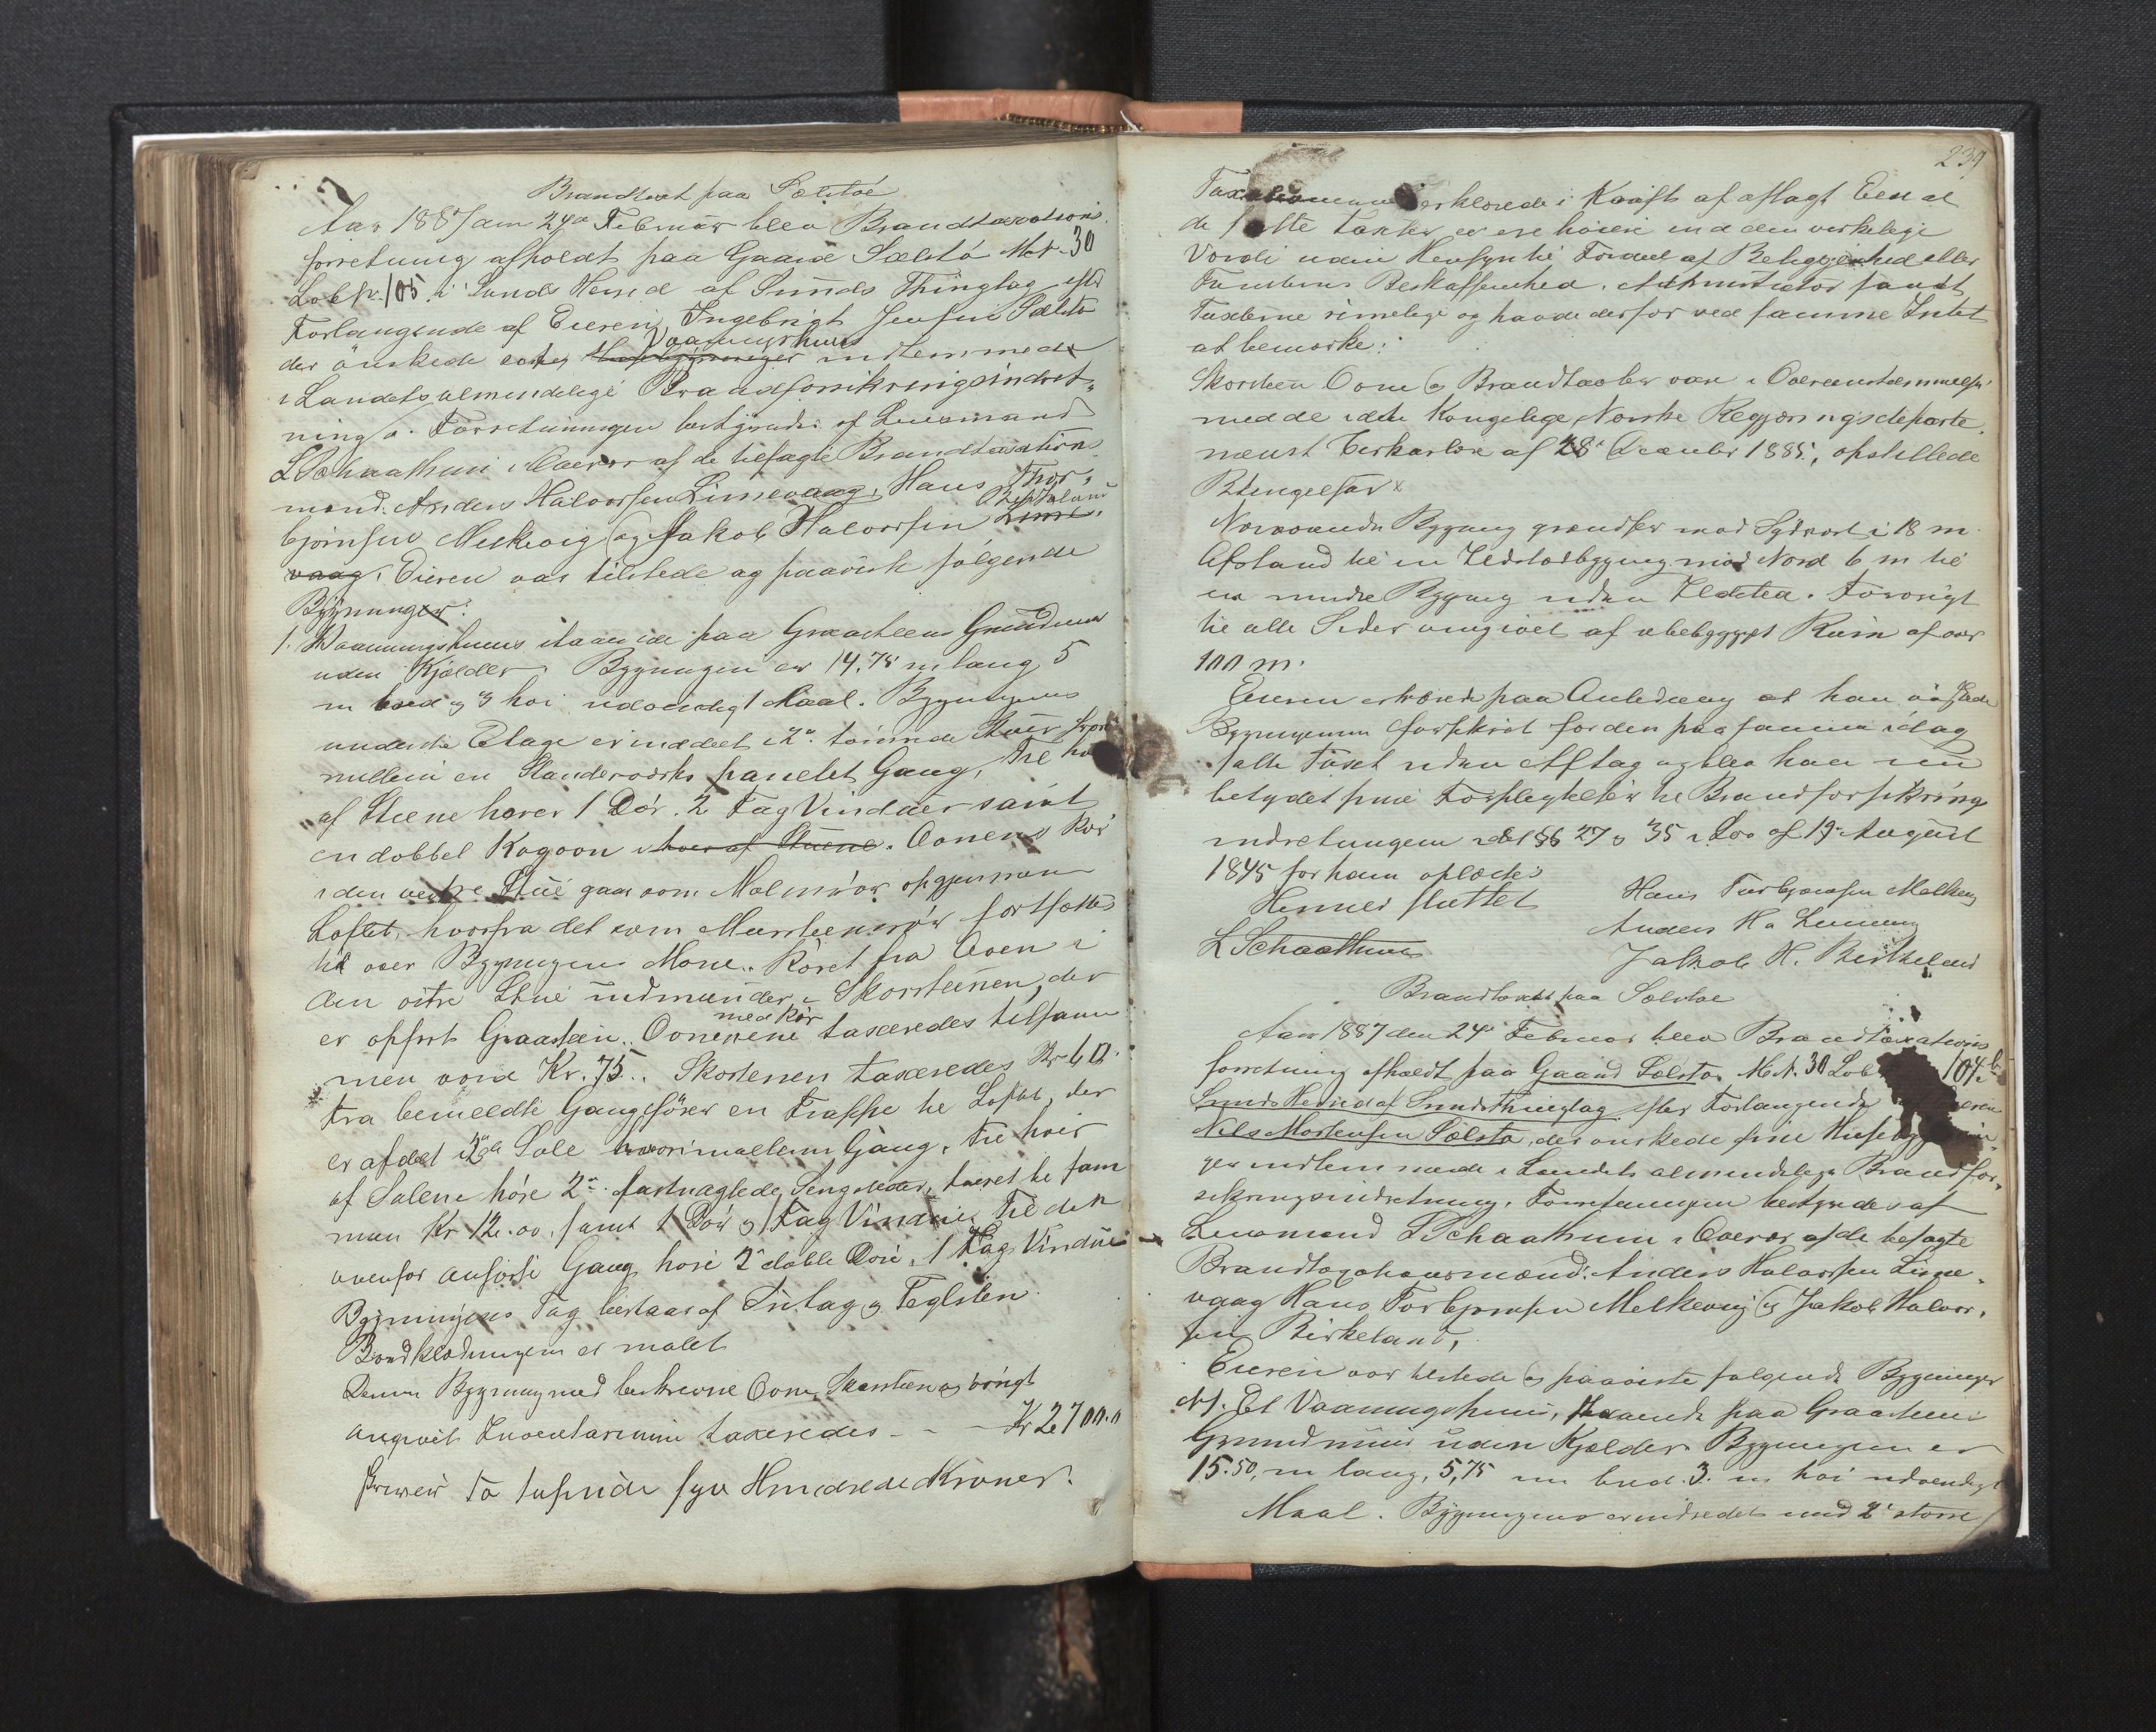 Brandtaxt paa Sælstøe
Aar 1887 den 24de Februar blev Brandtaxations
forretning afholdt paa Gaard Sælstø Mt. 30
Løb Nr. 105 i Sunds Herred af Sunds Thinglag efter
Forlangende af Eieren Ingebrigt Jensen Sælstø
Vaaningshuus
der ønskede indlemmede
i Landets almindelige Brandforsikringsindret-
ning Forretningen bestyredes af Lensmand
L Schaathun i Overvær af de tilsagte Brandtaxations
mænd. Anders Halvorsen Limevaag, Hans Thor-
Birkeland
bjørnsen Melkevig og Jakob Halvorsen Lime-
vaag. Eieren var tilstede og paaviste følgende
Bygninger:
1. Vaaningshuus staaende paa Graasteens Grundmuur
uden Kjelder. Bygningen er 14,75 m lang 5
m bred og 3 høi udvendigt Maal. Bygningens
underste Etage er inddeelt i 2de tømrede Stuer hvori-
mellem en Standerværks panelet Gang, Til hver
af Stuene hører 1 Dør. 2 Fag Vinduer samt
en dobbel Kogovn i hver af Stuene. Ovnens Rør
i den vestre Stue gaar som Malmrør opgjennem
Loftet, hvorfra det som Muursteensrør fortsættes
til over Bygningens Møne. Røret fra Oven i
den østre Stue indmunder i Skorstenen, der
er opført Graasteen. Ovnerene taxeredes tilsam-
med Rør
men værd Kr. 75. Skorstenen taxeredes Kr 60.
Fra bemeldte Gang fører en Trappe til Loftet, der
er afdelt i 2de Sale hvorimellem Gang. Til hver
af Salene høre 2de fastnaglede Sengesteder, taxeret til sam
men Kr 12.00, samt 1 Dør og 1 Fag Vindue. Til den
ovenfor anførte Gang høre 2de doble Døre, 1 Fag Vindue
Bygningens Tag bestaar af Sutag og Teglsten.
Bordklædningen er malet
Denne Bygning med beskrevne Ovne, Skorsteen og øvrigt
angivet Inventarium taxeredes - - - Kr 2700.0
skriver to tusinde syv Hundrede Kroner.
239
Taxationsmænd erklærede i Kraft af aflagt Eed at
de satte Taxter ei ere høiere end den virkelige
Værdi uden Hensyn til Fordeel af Beliggenhed eller
Tomtens Beskaffenhed. Administrator fandt
Taxterne rimelige og havde derfor ved samme Intet
at bemærke.
Skorsteen Ovne og Brandtavler vare i Overeenstemmelse
med de i det Kongelige Norske Regjeringsdeparte-
ments Cirkulære af 28 December 1885, opstillede
Betingelser
Nærværende Bygning grændser mod Sydvest i 18 m
Afstand til en Ildstedbygning mod Nord 6 m til
en mindre Bygning uden Ildsted. Forøvrigt
til alle Sider omgivet af ubebygget Rum af over
100 m.
Eieren erklærede paa Anledning at han ønskede
Bygningerne forsikret for den paa samme idag
satte Taxt uden Aftag og blev han nu
betydet sine Forpligtelser til Brandforsikrings
indretningen i det §§ 27 og 35 i Lov af 19de August
1845 for ham oplæste
Hermed sluttet Hans Torbjørnsen Melkevig
Anders H
L Schaathun Jakob H. Birkeland
Brandtaxt paa Sælstøe
Aar 1887 den 24de Februar blev Brandtaxations
forretning afholdt paa Gaard Sælstø Mt. 30 Løb 104 b
Sunds Herred af Sunds Thinglag efter Forlangende
Nils Mortensen Sælstø, der ønskede sine
ger indlemmede i Landets almindelige Brandfor-
sikringsindretning. Forretningen bestyredes af
Lensmand L Schaathun i Overvær af de tilsagte
Brandtaxationsmænd: Anders Halvorsen Lime-
vaag Hans Torbjørnsen Melkevig og Jakob Halvor-
sen Birkeland,
Eieren var tilstede og paaviste følgende Bygninger
N 1. Et Vaaningshuus, staaende paa Graasteens
Grundmuur uden Kjelder Bygningen er
15.50, m lang, 5,75 m bred. 3. m høi udvendigt
Maal. Bygningens er indredet med 2de større